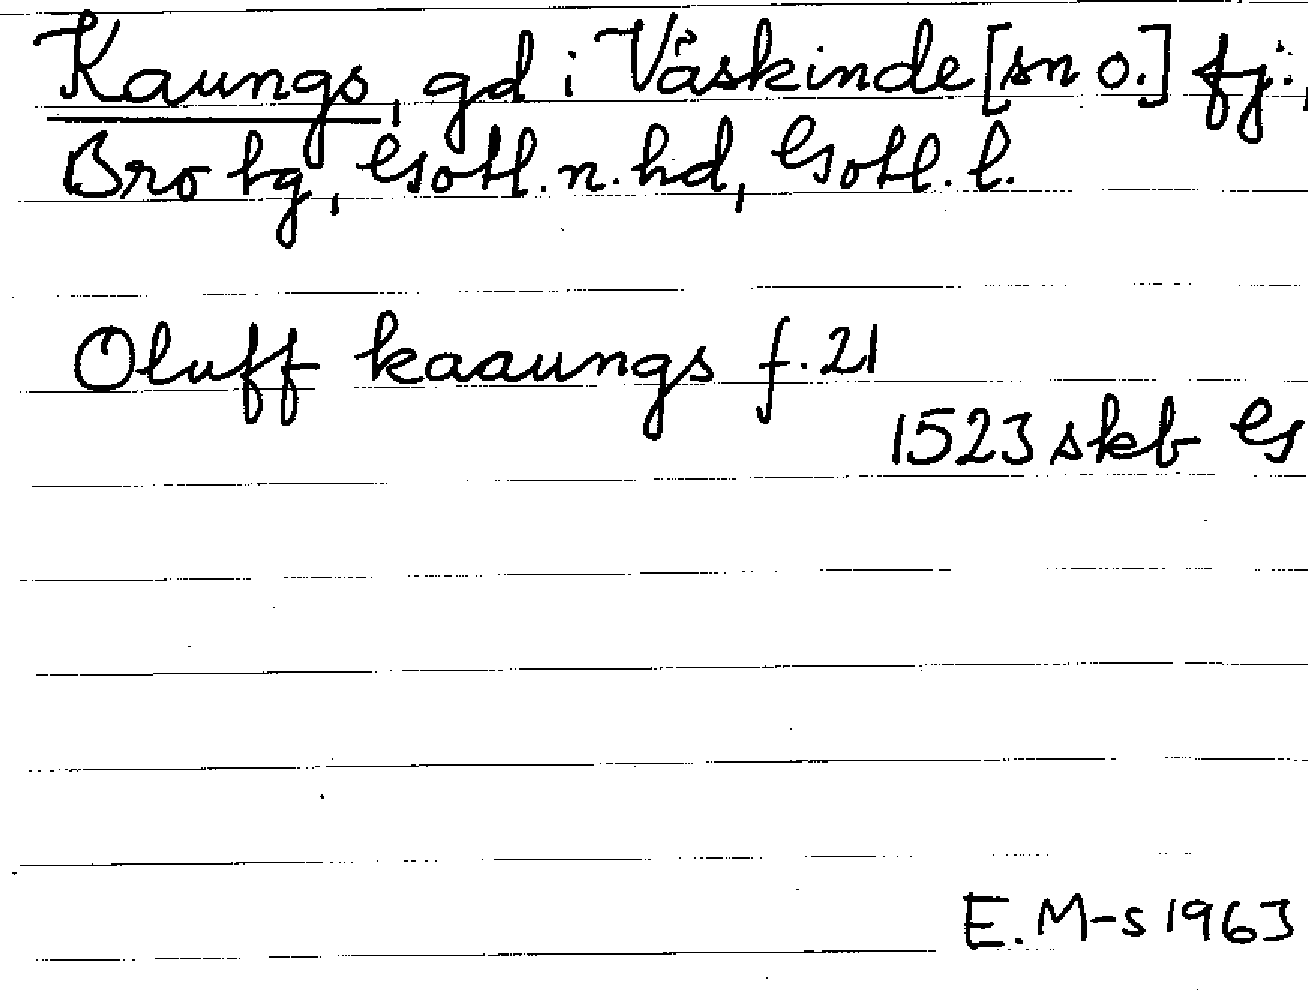 Kaungs, gd i Väskinde [sn o.] fj.,
Bro tg, Gotl. n. hd, Gotl. l.
Oluff kaaungs f. 21
1523 skb G
E. M-s 1963